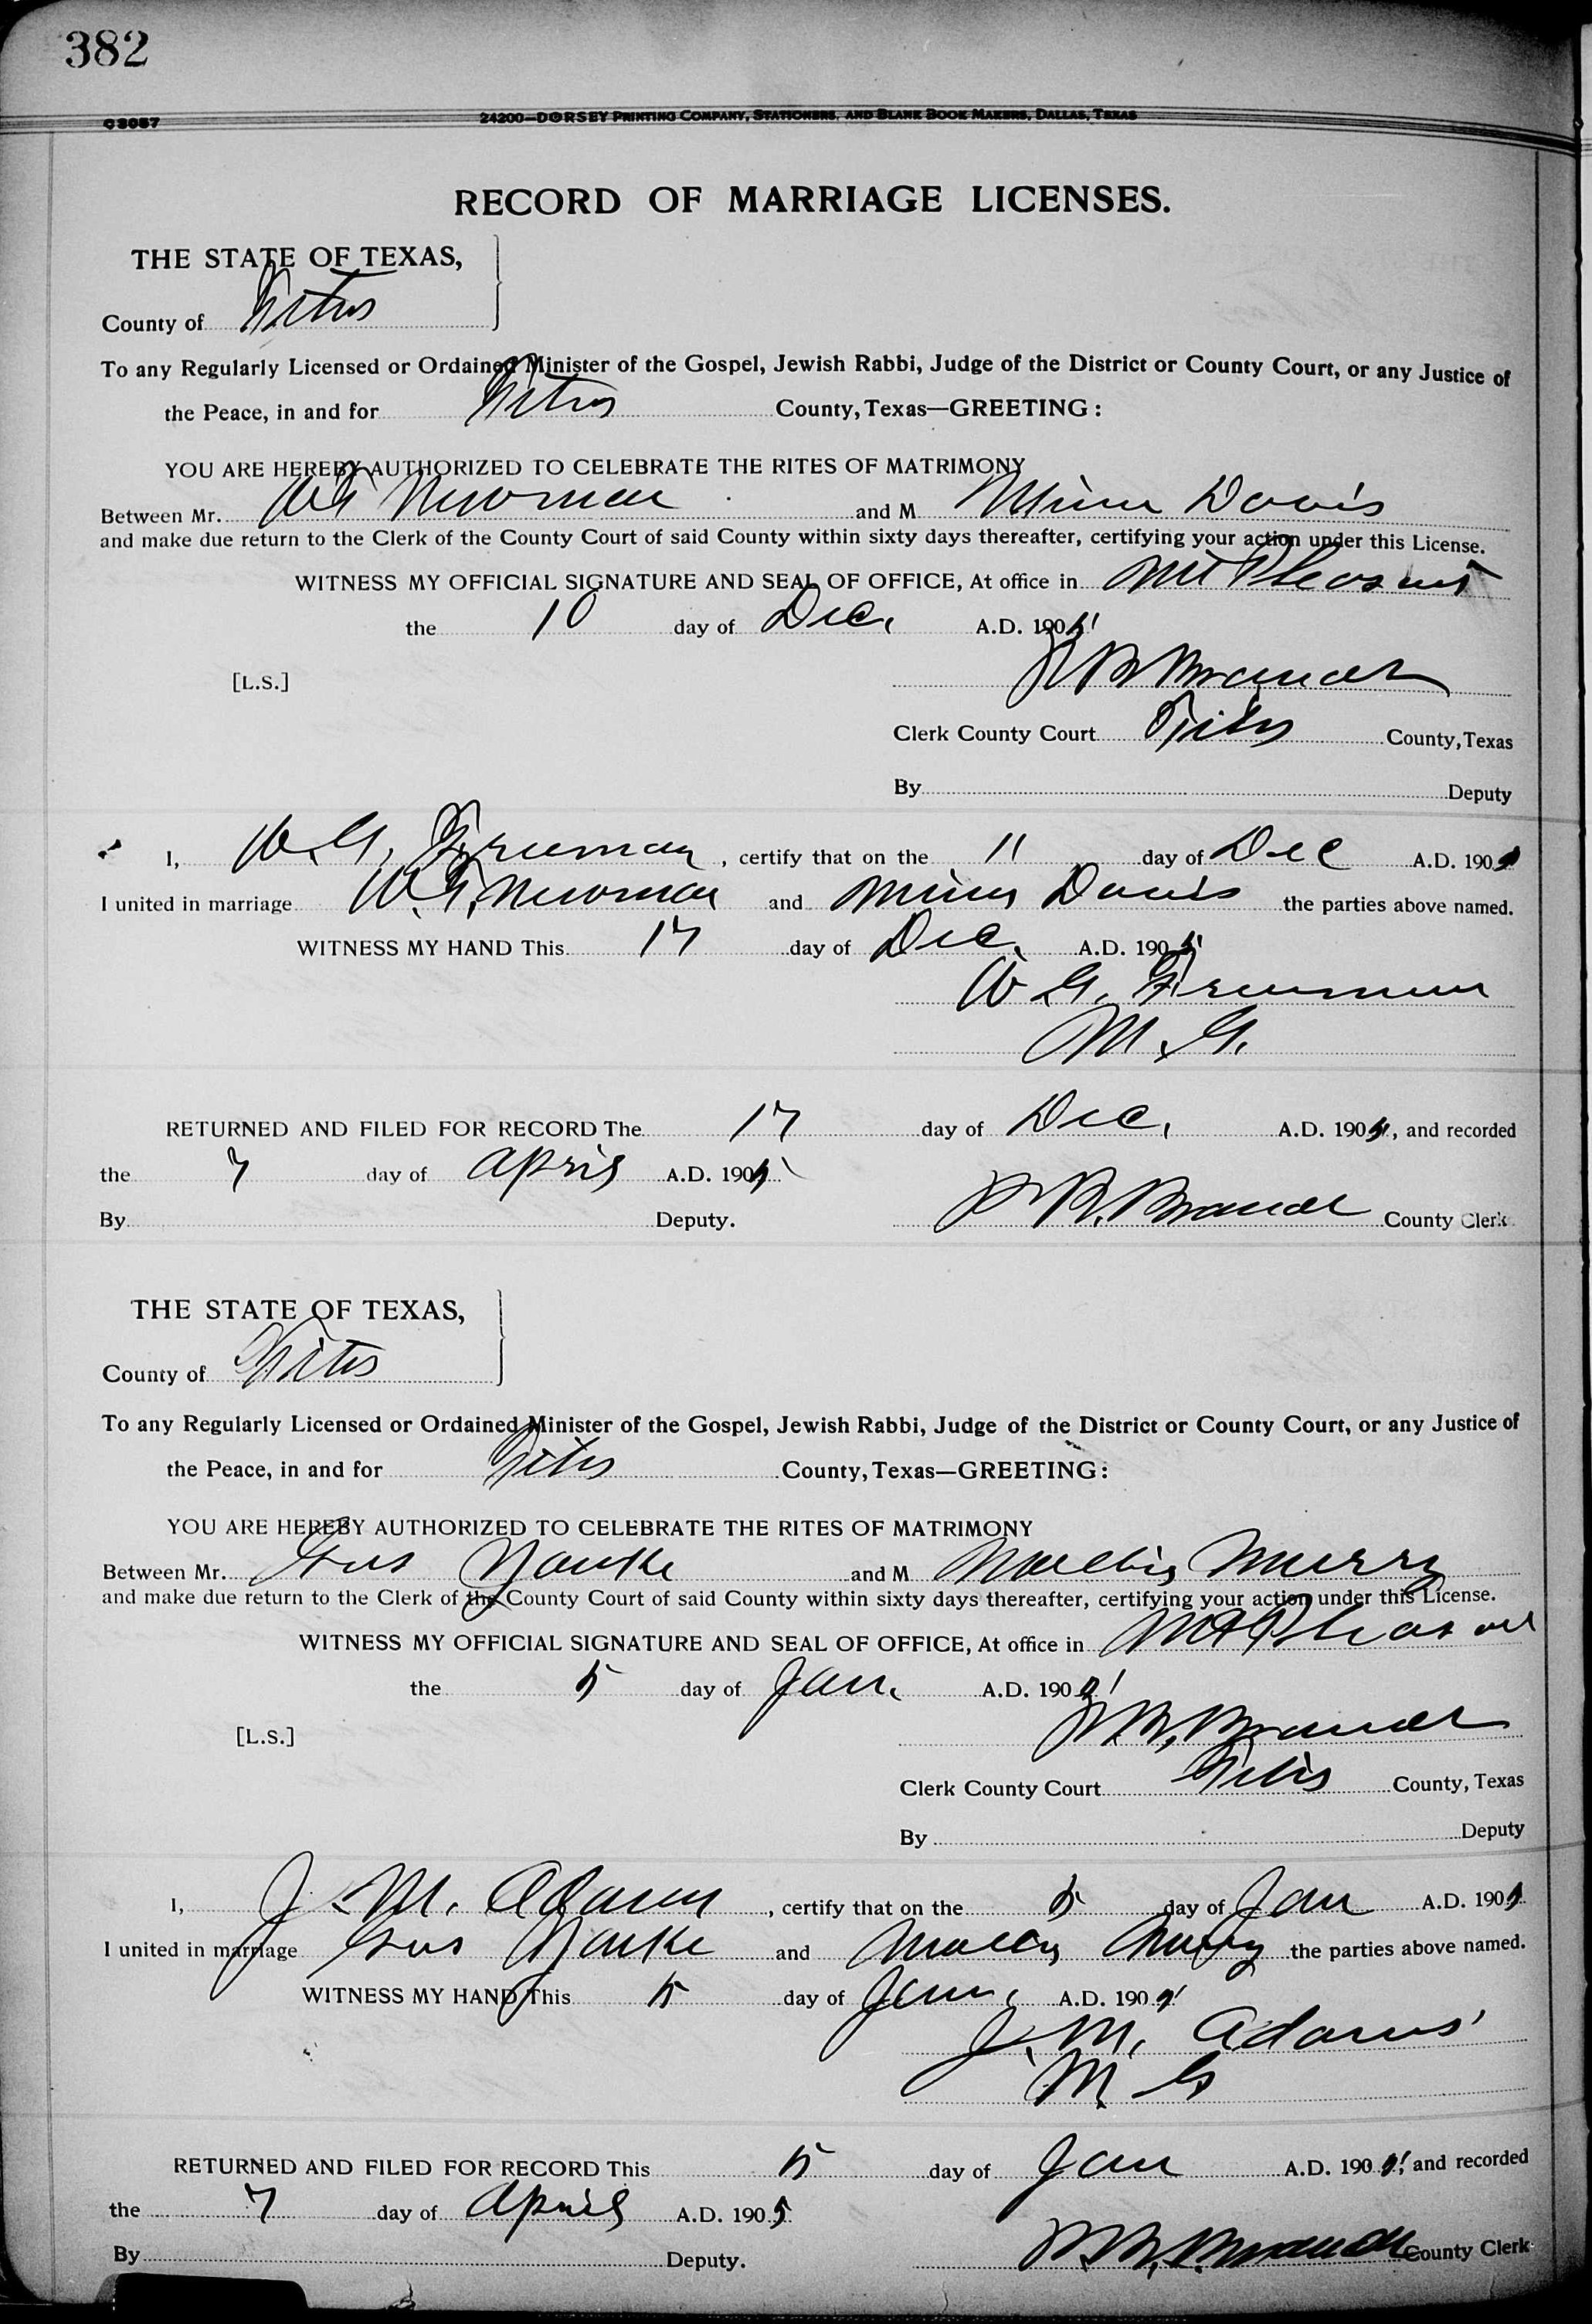 382
C 3057
24200—DORSEY PRINTING COMPANY, STATIONERS, AND BLANK BOOK MAKERS, DALLAS, TEXAS
RECORD OF MARRIAGE LICENSES.
THE STATE OF TEXAS,
County of Titus
To any Regularly Licensed or Ordained Minister of the Gospel, Jewish Rabbi, Judge of the District or County Court, or any Justice of
the Peace, in and for Titus County, Texas—GREETING:
YOU ARE HEREBY AUTHORIZED TO CELEBRATE THE RITES OF MATRIMONY
Between Mr. W T Newman and M Davis
and make due return to the Clerk of the County Court of said County within sixty days thereafter, certifying your action under this License.
WITNESS MY OFFICIAL SIGNATURE AND SEAL OF OFFICE, At office in Mt Pleasant
the 10 day of Dec. A.D. 190
[L.S.] Brandt
Clerk County Court Titus County, Texas
By Deputy
I, W. G. Freeman, certify that on the 11 day of Dec A.D. 190
I united in marriage W. T. Newman and Davis the parties above named.
WITNESS MY HAND This 17 day of Dec. A.D. 190
W G. Freeman
M. G.
RETURNED AND FILED FOR RECORD The 17 day of Dec, A.D. 190 , and recorded
the 7 day of April A.D. 1905
By Deputy. B. Brandt County Clerk
THE STATE OF TEXAS,
County of Titus
To any Regularly Licensed or Ordained Minister of the Gospel, Jewish Rabbi, Judge of the District or County Court, or any Justice of
the Peace, in and for Titus County, Texas—GREETING:
YOU ARE HEREBY AUTHORIZED TO CELEBRATE THE RITES OF MATRIMONY
Between Mr. Gus and M Murry
and make due return to the Clerk of the County Court of said County within sixty days thereafter, certifying your action under this License.
WITNESS MY OFFICIAL SIGNATURE AND SEAL OF OFFICE, At office in Mt Pleasant
the 5 day of Jan. A.D. 190
[L.S.] B, Brandt
Clerk County Court Titus County, Texas
By Deputy
I, J. M. Adams, certify that on the 5 day of Jan A.D. 1905
I united in marriage Gus and the parties above named.
WITNESS MY HAND This 5 day of Jan. A.D. 190
J. M. Adams
M G
RETURNED AND FILED FOR RECORD This 5 day of Jan A.D. 190 , and recorded
the 7 day of April A.D. 1905
By Deputy. B. Brandt County Clerk